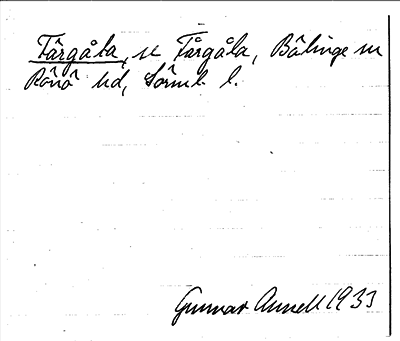 Fârgåla, se Fårgåla, Bälinge sn
Rönö hd, Sörml. l.
Gunnar Annell 1933